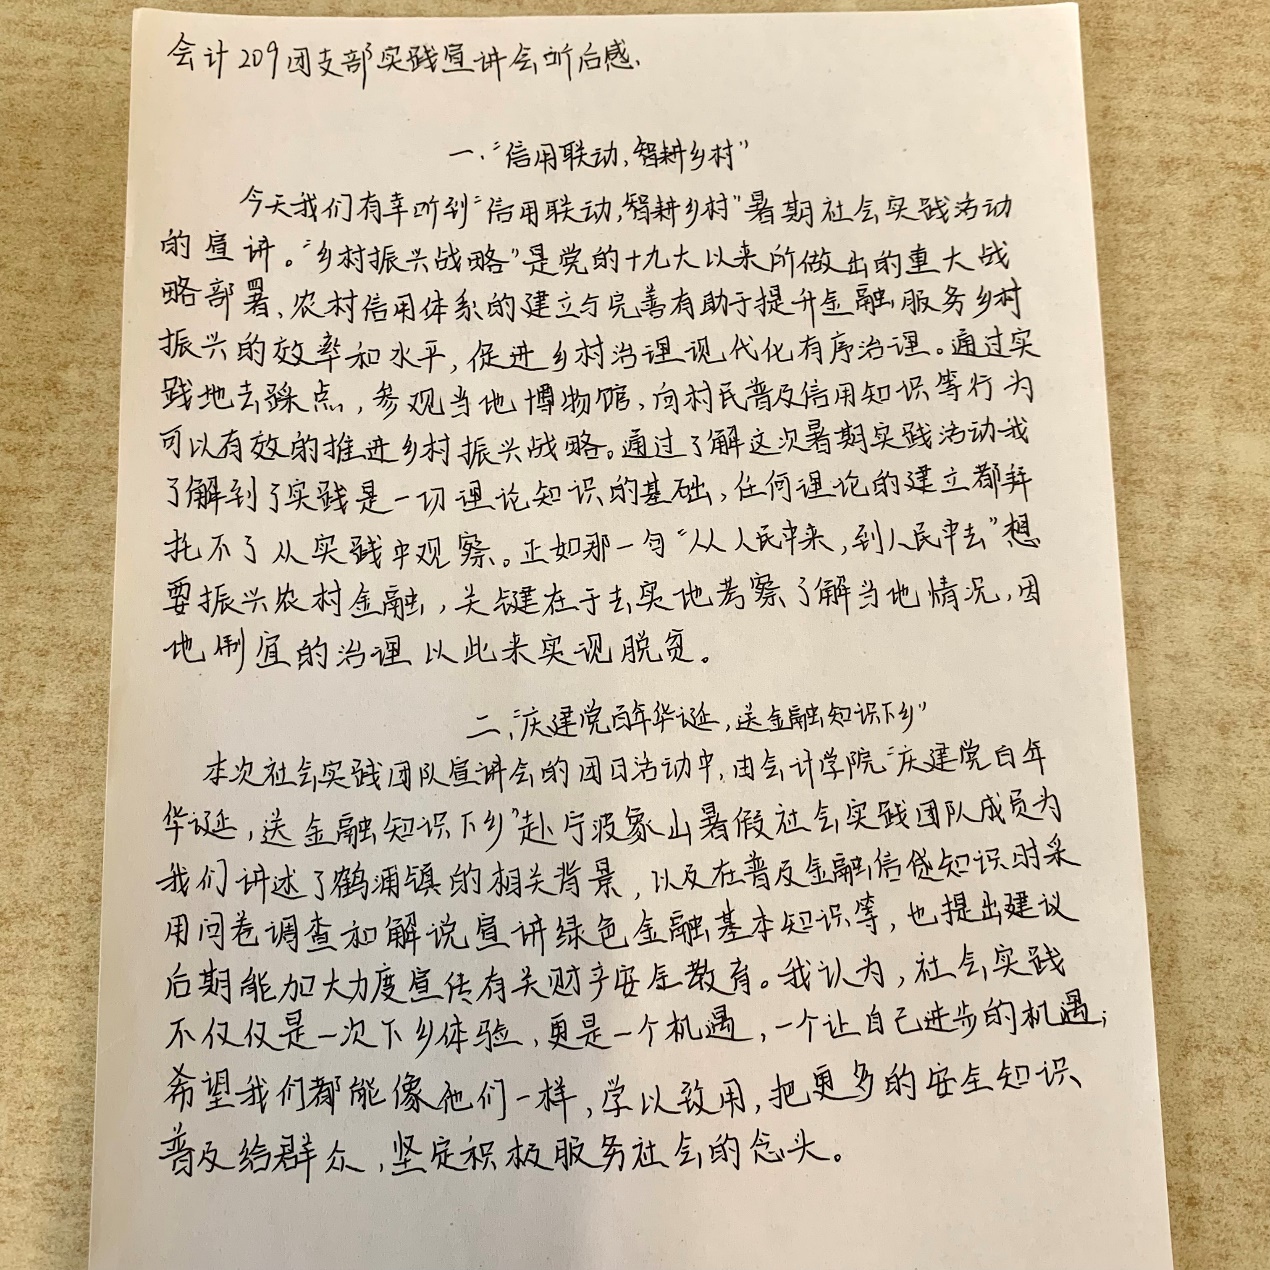 会计209团支部实践宣讲会听后感、
一、“信用联动,智耕乡村”
今天我们有幸听到“信用联动,智耕乡村”暑期社会实践活动
的宣讲。“乡村振兴战略”是党的十九大以来所做出的重大战
略部署、农村信用体系的建立与完善有助于提升金融服务乡村
振兴的效率和水平,促进乡村治理现代化有序治理。通过实
践地去踩点,参观当地博物馆,向村民普及信用知识等行为
可以有效的推进乡村振兴战略。通过了解这次暑期实践活动我
了解到了实践是一切理论知识的基础,任何理论的建立都拜
托不了从实践中观察。正如那一句“从人民中来,到人民中去”想
要振兴农村金融,关键在于去实地考察了解当地情况,因
地制宜的治理以此来实现脱贫。
二、“庆建党百年华诞,送金融知识下乡”
本次社会实践团队宣讲会的团日活动中,由会计学院“庆建党百年
华诞,送金融知识下乡”赴宁波象山暑假社会实践团队成员为
我们讲述了鹤浦镇的相关背景,以及在普及金融信贷知识时采
用问卷调查和解说宣讲绿色金融基本知识等,也提出建议
后期能加大力度宣传有关财产安全教育。我认为,社会实践
不仅仅是一次下乡体验,更是一个机遇,一个让自己进步的机遇;
希望我们都能像他们一样,学以致用,把更多的安全知识
普及给群众,坚定积极服务社会的念头。